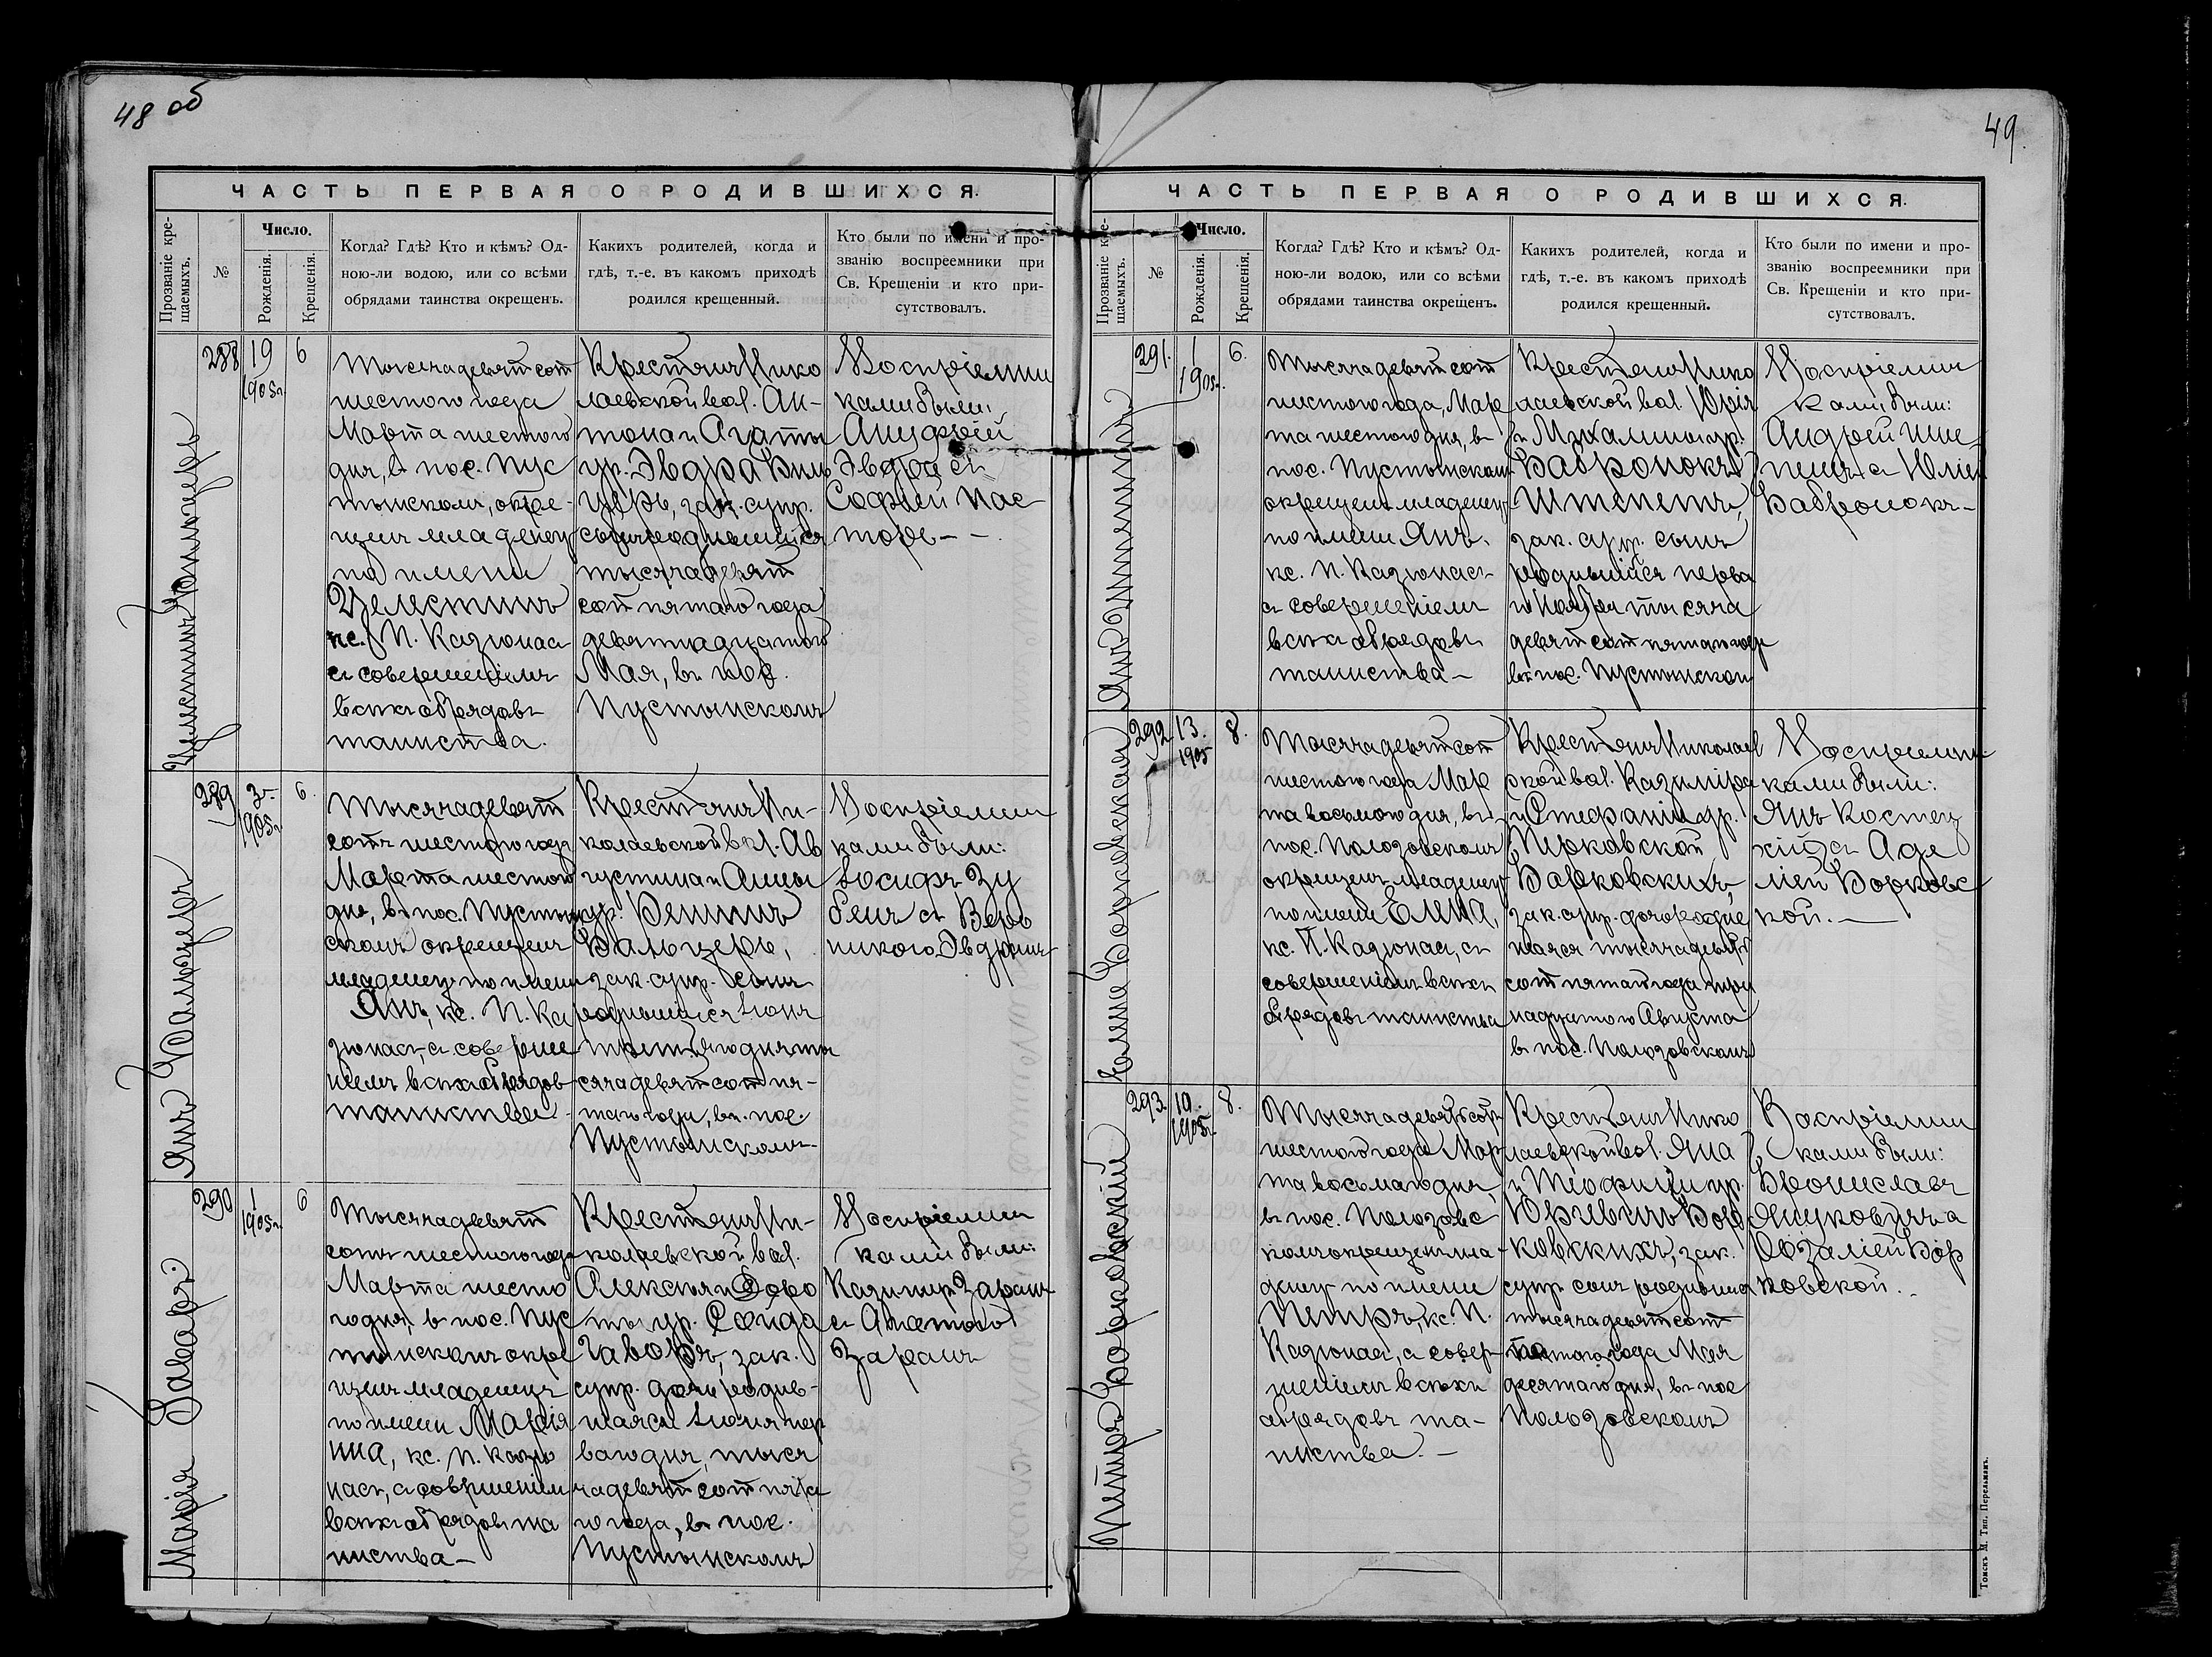 48 об
ЧАСТЬ ПЕРВАЯ О РОДИВШИХСЯ.
Прозваніе кре-
щаемыхъ.
№
Число.
Рожденія.
Крещенія.
Когда? Гдѣ? Кто и кѣмъ? Од-
ною-ли водою, или со всѣми
обрядами таинства окрещенъ.
Какихъ родителей, когда и
гдѣ, т.-е. въ какомъ приходѣ
родился крещенный.
Кто были по имени и про-
званію воспреемники при
Св. Крещеніи и кто при-
сутствовалъ.
288
19
1905г.
6
Тысяча девятсот
шестого года
Марта шестого
дня, въ пос. Пус
тынскомъ, окре-
щенъ младенец
по имени
Целестинъ
кс. П. Казюнас
съ совершеніемъ
всѣхъ обрядовъ
таинства.
Крестьянъ Нико
лаевской вол. Ан-
тона и Агаты
ур. Эвдра
зак. супр.
сынъ родившійся
тысяча девят
сот пятаго года
девятнадцатого
Мая, въ пос.
Пустынскомъ
Воспріемни
ками были:
Ануфрій
Эвдра съ
Софіей Пас
торъ - -
289
3
1905г.
6.
Янъ Вальцеръ
Тысяча девят
сотъ шестого года
Марта шестого
дня, въ пос. Пустын
скомъ окрещенъ
младенец по имени
Янъ, кс. П. Ка
зюнас, съ соверше
ніемъ всѣхъ обрядов
таинства -
Крестьянъ Ни-
колаевской вол. Ав
густина и Анны
ур.
Вальцеръ,
зак. супр. сынъ
родившійся Іюня
третьяго дня ты
сяча девятсот пя-
таго года, въ пос.
Пустынскомъ -
Воспріемни
ками были:
Іосифъ Зу
бенъ съ Веро
никою Эвдринъ
290
1
1905г.
6
Марія
Тысяча девят
сотъ шестого года
Марта шесто
го дня, въ пос. Пус
тынскомъ окре
щенъ младенец
по имени Марія
нна, кс. П. Казю
нас, съ совршеніем
всѣхъ обрядовъ та
инства -
Крестьянъ Ни-
колаевской вол.
Алексѣя и Доро
ты ур. Сойда
зак.
супр. дочь родив-
шаяся Іюня пер
ваго дня, тыся
ча девятсот пята
го года, въ пос.
Пустынскомъ
Воспріемни
ками были:
Казимир Заранъ
съ Агатой
Заранъ
49.
ЧАСТЬ ПЕРВАЯ О РОДИВШИХСЯ.
Прозваніе кре-
щаемыхъ.
№
Число.
Рожденія.
Крещенія.
Когда? Гдѣ? Кто и кѣмъ? Од-
ною-ли водою, или со всѣми
обрядами таинства окрещенъ.
Какихъ родителей, когда и
гдѣ, т.-е. въ какомъ приходѣ
родился крещенный.
Кто были по имени и про-
званію воспреемники при
Св. Крещеніи и кто при-
сутствовалъ.
291.
1
1905г.
6.
Тысяча девятсот
шестого года, Мар
та шестого дня, въ
пос. Пустынском
окрещенъ младенец
по имени Янъ,
кс. П. Казюнас
съ совершеніемъ
всѣхъ обрядовъ
таинства -
Крестьянъ Нико
лаевской вол. Юрія
и Михалины ур.
Бабронокъ
Штепетъ,
зак. супр. сынъ
родившійся перва
го Ноября тысяча
девятсот пятаго года
въ пос. Пустынском
Воспріемни
ками были:
Андрей Ште
петъ съ Юліей
Бабронокъ -
292
13.
1905
8.
Елена Борковская
Тысяча девятсот
шестого года Мар
та восьмого дня, въ
пос. Полозовскомъ
окрещенъ младенец
по имени Елена,
кс. П. Казюнас, съ
совершеніемъ всѣхъ
обрядовъ таинства
Крестьянъ Николаев
ской вол. Казиміра
и Стефаніи ур.
Пирковской
Борковскихъ
зак. супр. дочь родив
шаяся тысяча девят
сот пятаго года три
надцатого Августа
въ пос. Полозовскомъ
Воспріемни
ками были:
Янъ Костец
кій съ Аде
лей Борковс
кой. -
293.
10.
1905г.
8.
Петръ Борковскій
Тысяча девятсотъ
шестого года Мар
та восьмаго дня,
въ пос. Полозовс
комъ окрещенъ мла-
денец по имени
Петръ, кс. П.
Казюнас, съ совер
шеніемъ всѣхъ
обрядовъ та-
инства. -
Крестьянъ Нико
лаевской вол. Яна
и Теофиліи ур.
Юревичъ Бор
ковскихъ, зак.
супр. сынъ родивш
тысяча девятсот
пятого года Мая
десятаго дня, въ пос
Полозовскомъ
Воспріемни
ками были:
Брониславъ
Януковичъ съ
Розаліей Бор
ковской.
Томскъ М. Тип. Перельманъ.